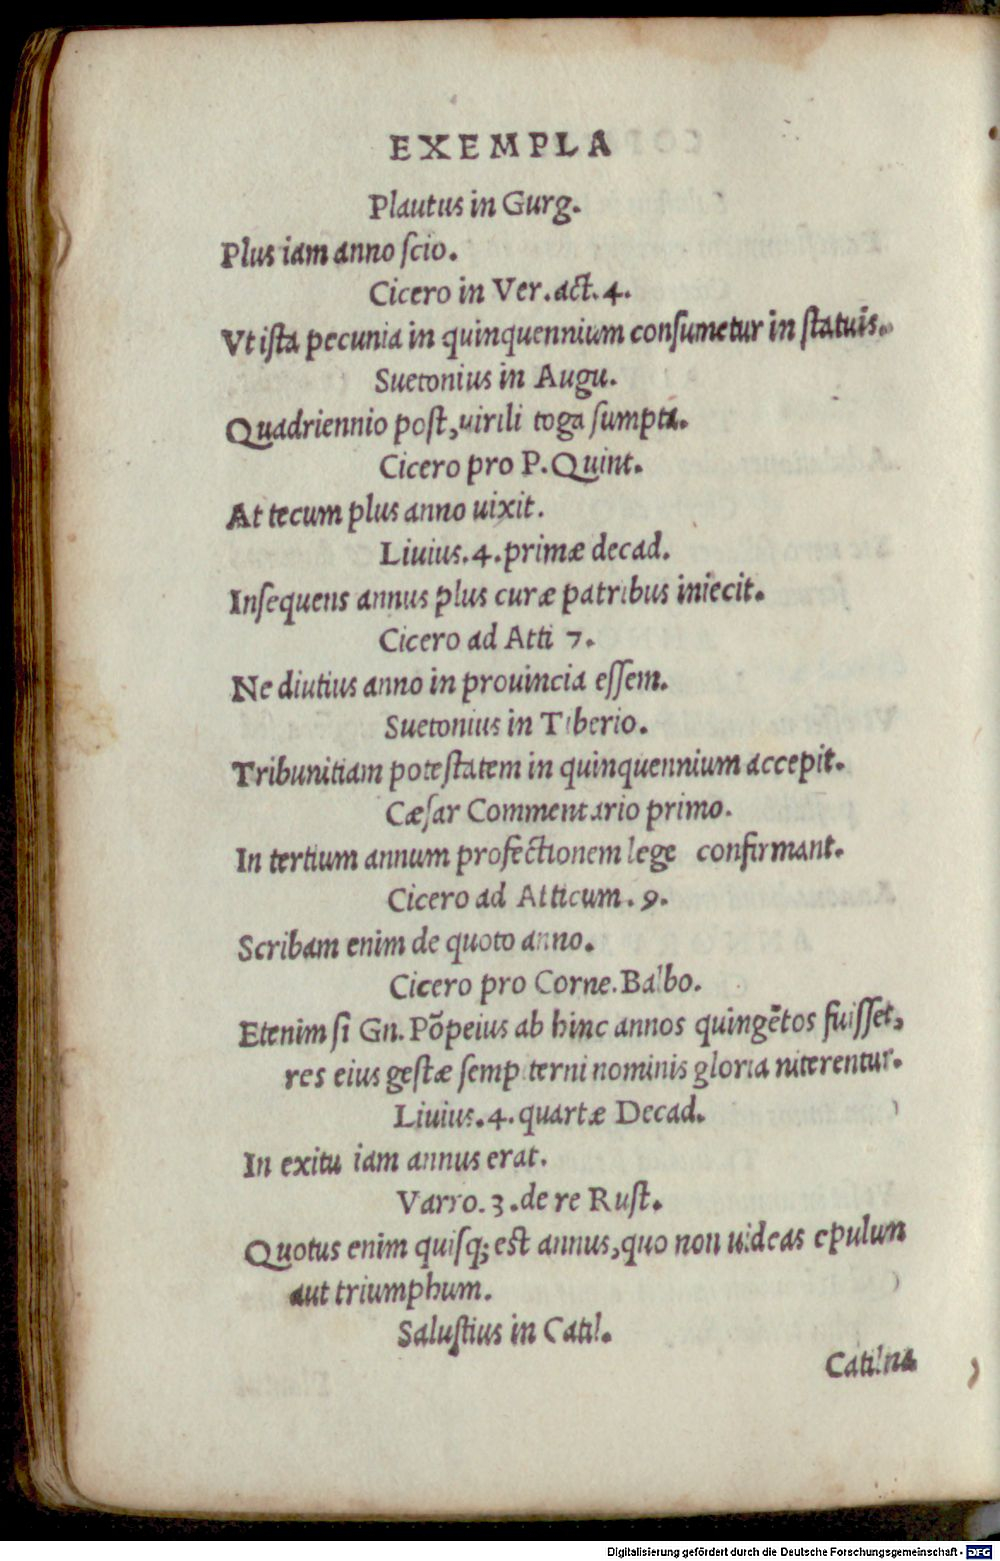 EXEMPLA
Plautus in Gurg.
Plus iam anno ſcio.
Cicero in Ver. act. 4.
Vt iſta pecunia in quinquennium conſumetur in ſtatuis.
Suetonius in Augu.
Quadriennio poſt, uirili toga ſumpta.
Cicero pro P. Quint.
At tecum plus anno uixit.
Liuius. 4. primæ decad.
Inſequens annus plus curæ patribus iniecit.
Cicero ad Atti 7.
Ne diutius anno in prouincia eſſem.
Suetonius in Tiberio.
Tribunitiam poteſtatem in quinquennium accepit.
Cæſar Commentario primo.
In tertium annum profectionem lege confirmant.
Cicero ad Atticum. 9.
Scribam enim de quoto anno.
Cicero pro Corne. Balbo.
Etenim ſi Gn. Põpeius ab hinc annos quingẽtos fuiſſet,
res eius geſtæ ſempiterni nominis gloria niterentur.
Liuius. 4. quartæ Decad.
In exitu iam annus erat.
Varro. 3. de re Ruſt.
Quotus enim quiſq; eſt annus, quo non uideas epulum
aut triumphum.
Saluſtius in Catil.
Catilina
Digitalisierung gefördert durch die Deutsche Forschungsgemeinschaft - DFG